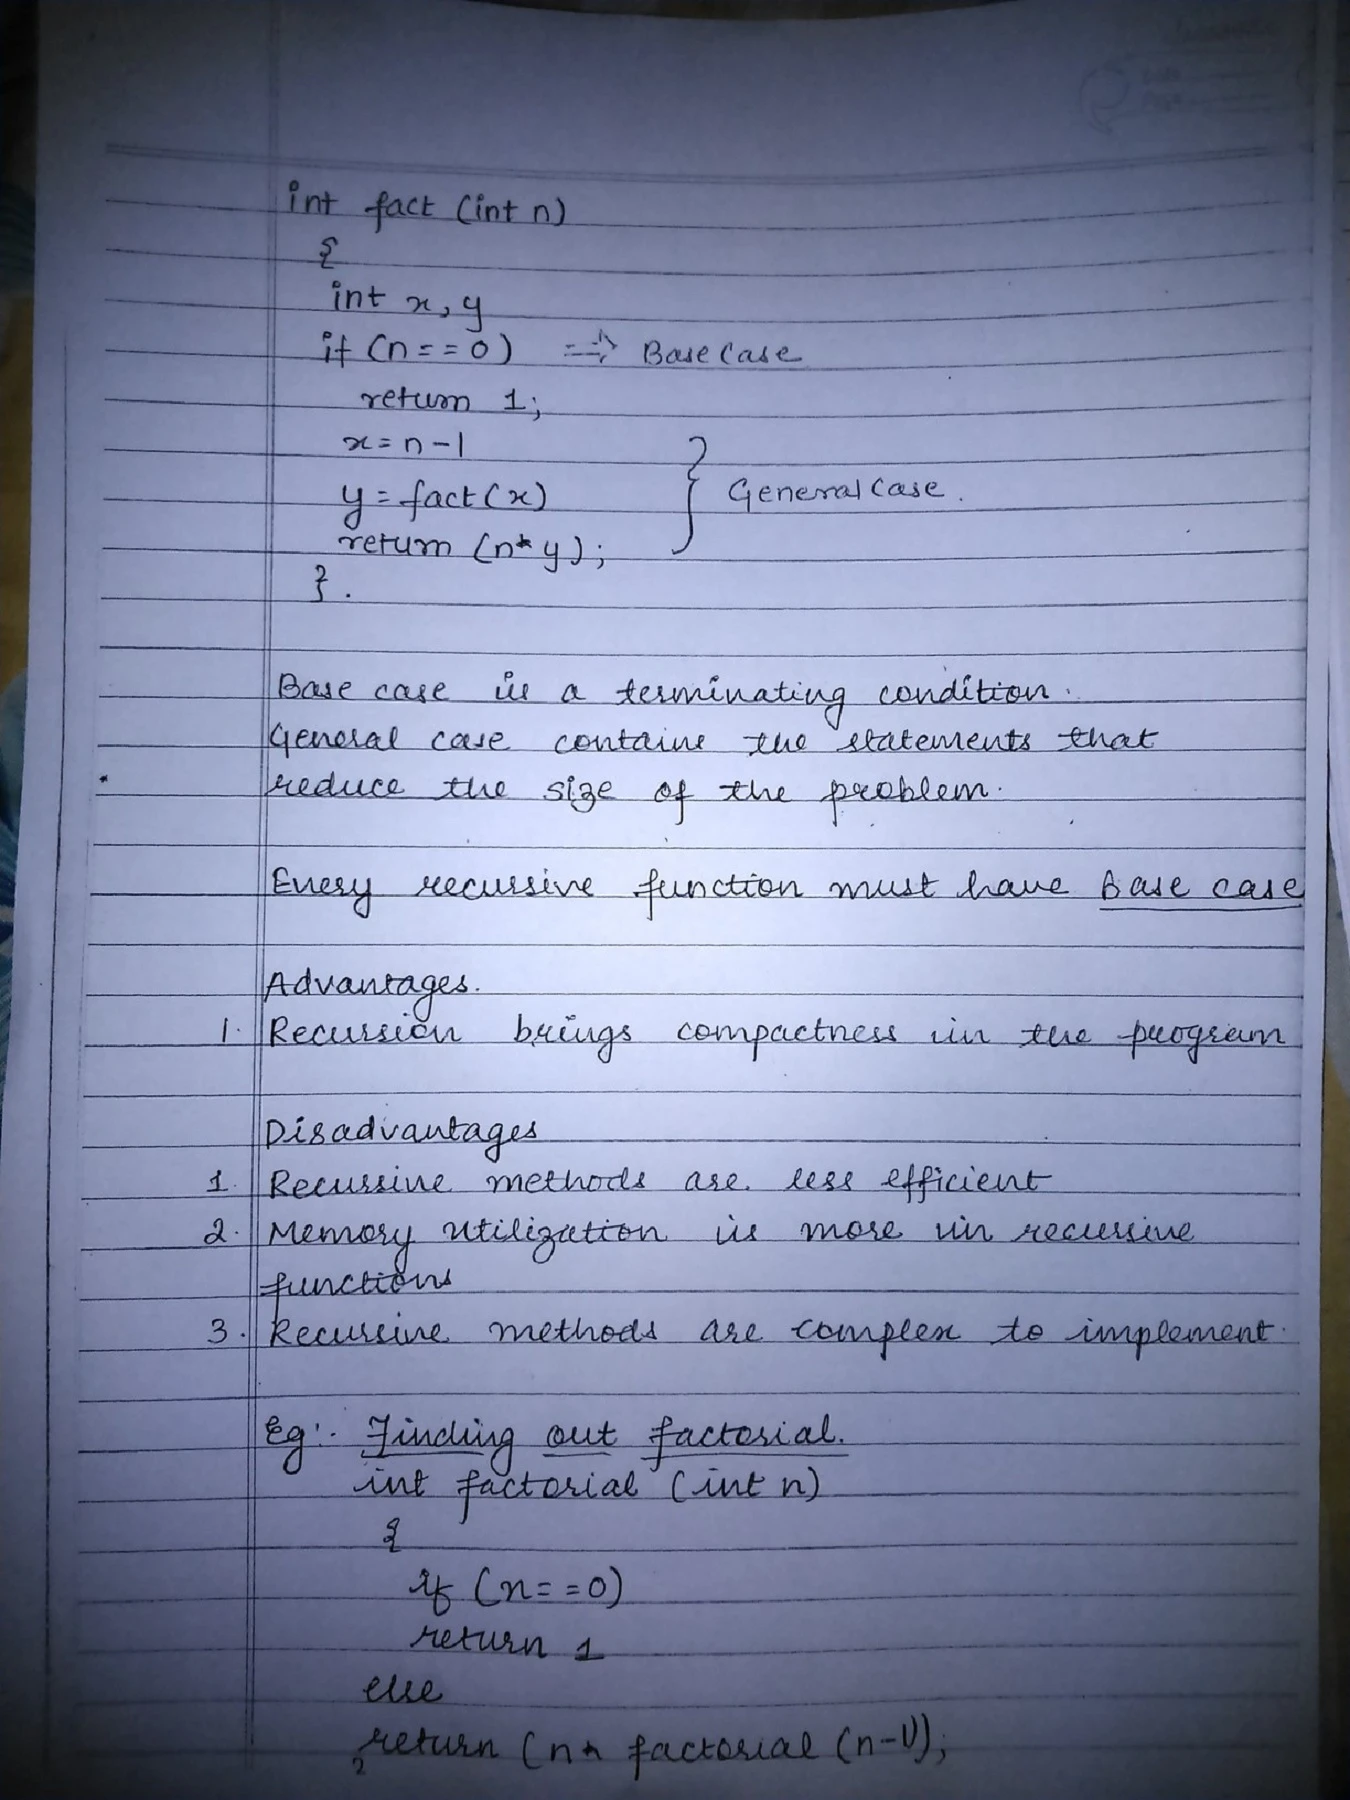 int fact (int n)
{
int x, y
if (n == 0) ==> Base Case
return 1;
x = n - 1
y = fact(x)
General Case.
return (n* y);
}.
Base case is a terminating condition.
General case contains the statements that
reduce the size of the problem.
Every recursive function must have Base case
Advantages.
1. Recursion brings compactness in the program
Disadvantages
1. Recursive methods are less efficient
2. Memory utilization is more in recursive
functions
3. Recursive methods are complex to implement.
Eg:- Finding out factorial.
int factorial (int n)
{
if (n = = 0)
return 1
else
return (n * factorial (n-1));
}